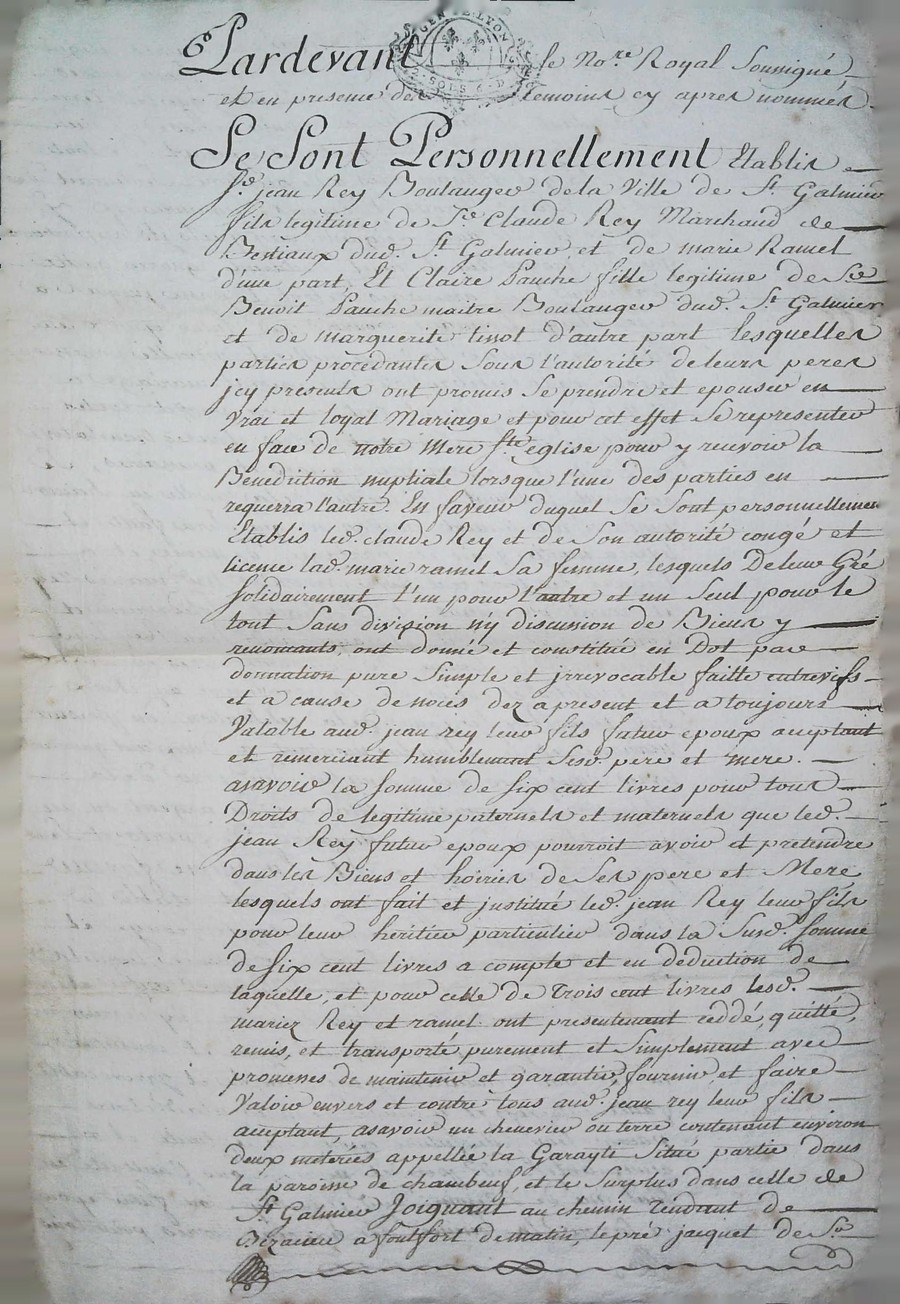 GEN DE LYON
2 SOLS 6 D
Pardevant le No.re Royal Soussigné
et en presence des temoins cy apres nommés
Se Sont Personnellement Etablis
Sr. jean Rey Boulanger de la Ville de St. Galmier
fils legitime de Sr. Claude Rey Marchand de
Bestiaux dud. St. Galmier, et de marie Ramel
d'une part, Et Claire Panche fille legitime de Sr.
Benoit Panche maitre Boulanger dud. St. Galmier
et de marguerite tinot d'autre part lesquelles
parties procédantes Sous l'autorité de leurs peres
jcy presents ont promis Se prendre et epouser en
Vrai et loyal Mariage et pour cet effet Se representer
en face de notre Mere Ste. eglise pour y recevoir la
Benediction nuptiale lorsque l'une des parties en
requerra l'autre. En faveur duquel Se Sont personnellemen
Etablis led. claude Rey et de Son autorité congé et
licence lad. marie ramel Sa femme, lesquels De leur Gré
Solidairement l'un pour l'autre et un Seul pour le
tout Sans division ny discussion de Biens y
renonçants, ont donné et constitué en Dot par
donnation pure Simple et jrrevocable faitte entrevifs
et a cause de noces dez apresent et a toujours
Valable aud. jean rey leur fils futur epoux acceptant
et remerciant humblement Sesd. pere et mere.
asavoir la somme de six cent livres pour tous
Droits de legitime paternels et maternels que led.
jean Rey futur epoux pourroit avoir et pretendre
dans les Biens et hoiries de Ses pere et Mere
lesquels ont fait et jnstitué led. jean Rey leur fils
pour leur héritier particulier dans la Susd. somme
de six cent livres a compte et en deduction de
laquelle, et pour celle de Trois cent livres lesd.
mariez Rey et ramel ont presentement ceddé, quitté,
remis, et transporté purement et Simplement avec
promesses de maintenir et garantir, fournir et faire
Valoir envers et contre tous aud. jean rey leur fils
acceptant, asavoir un chenevier ou terre contenant environ
deux meteries appellée la Garayti Situé partie dans
la paroisse de chambeuf, et le Surplus dans celle de
St. Galmier Joignant au chemin tendant de
a fontfort de matin, le pré jacquet de Sr.